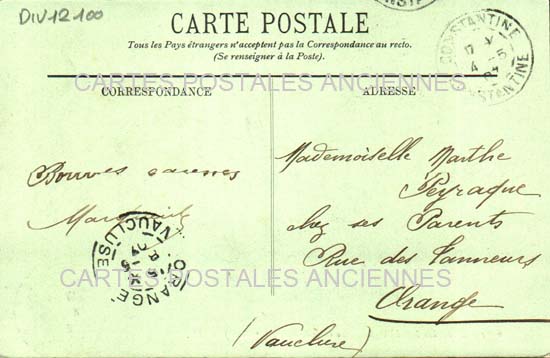 DIV12-100
CARTE POSTALE
Tous les Pays étrangers n'acceptent pas la Correspondance au recto.
(Se renseigner à la Poste).
CONSTANTINE
CONSTANTINE
CARTES POSTALES ANCIENNES
CORRESPONDANCE
ADRESSE
Bonnes caresses
Mademoiselle Marthe
Peyraque
chez ses Parents
Rue des Tanneurs
Orange
(Vaucluse)
ORANGE
VAUCLUSE
CARTES POSTALES ANCIENNES